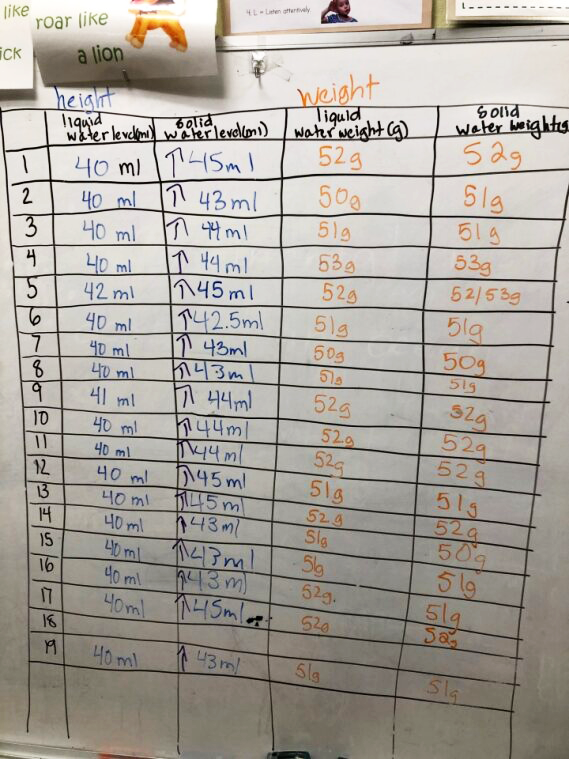 like
roar like
a lion
4. L = Listen attentively.
height weight
liquid water level(ml) solid water level(ml) liquid water weight (g) solid water weight(g)
1 40 ml ↑45ml 52g 52g
2 40 ml ↑43ml 50g 51g
3 40 ml ↑44ml 51g 51g
4 40 ml ↑44ml 53g 53g
5 42 ml ↑45ml 52g 52/53g
6 40 ml ↑42.5ml 51g 51g
7 40 ml ↑43ml 50g 50g
8 40 ml ↑43ml 51g 51g
9 41 ml ↑44ml 52g 52g
10 40 ml ↑44ml 52g 52g
11 40 ml ↑44ml 52g 52g
12 40 ml ↑45ml 51g 51g
13 40 ml ↑45ml 52g 52g
14 40ml ↑43ml 51g 50g
15 40ml ↑43ml 51g 51g
16 40ml ↑43ml 52g. 51g
17 40ml ↑45ml 52g 52g
18
19 40ml ↑43ml 51g 51g